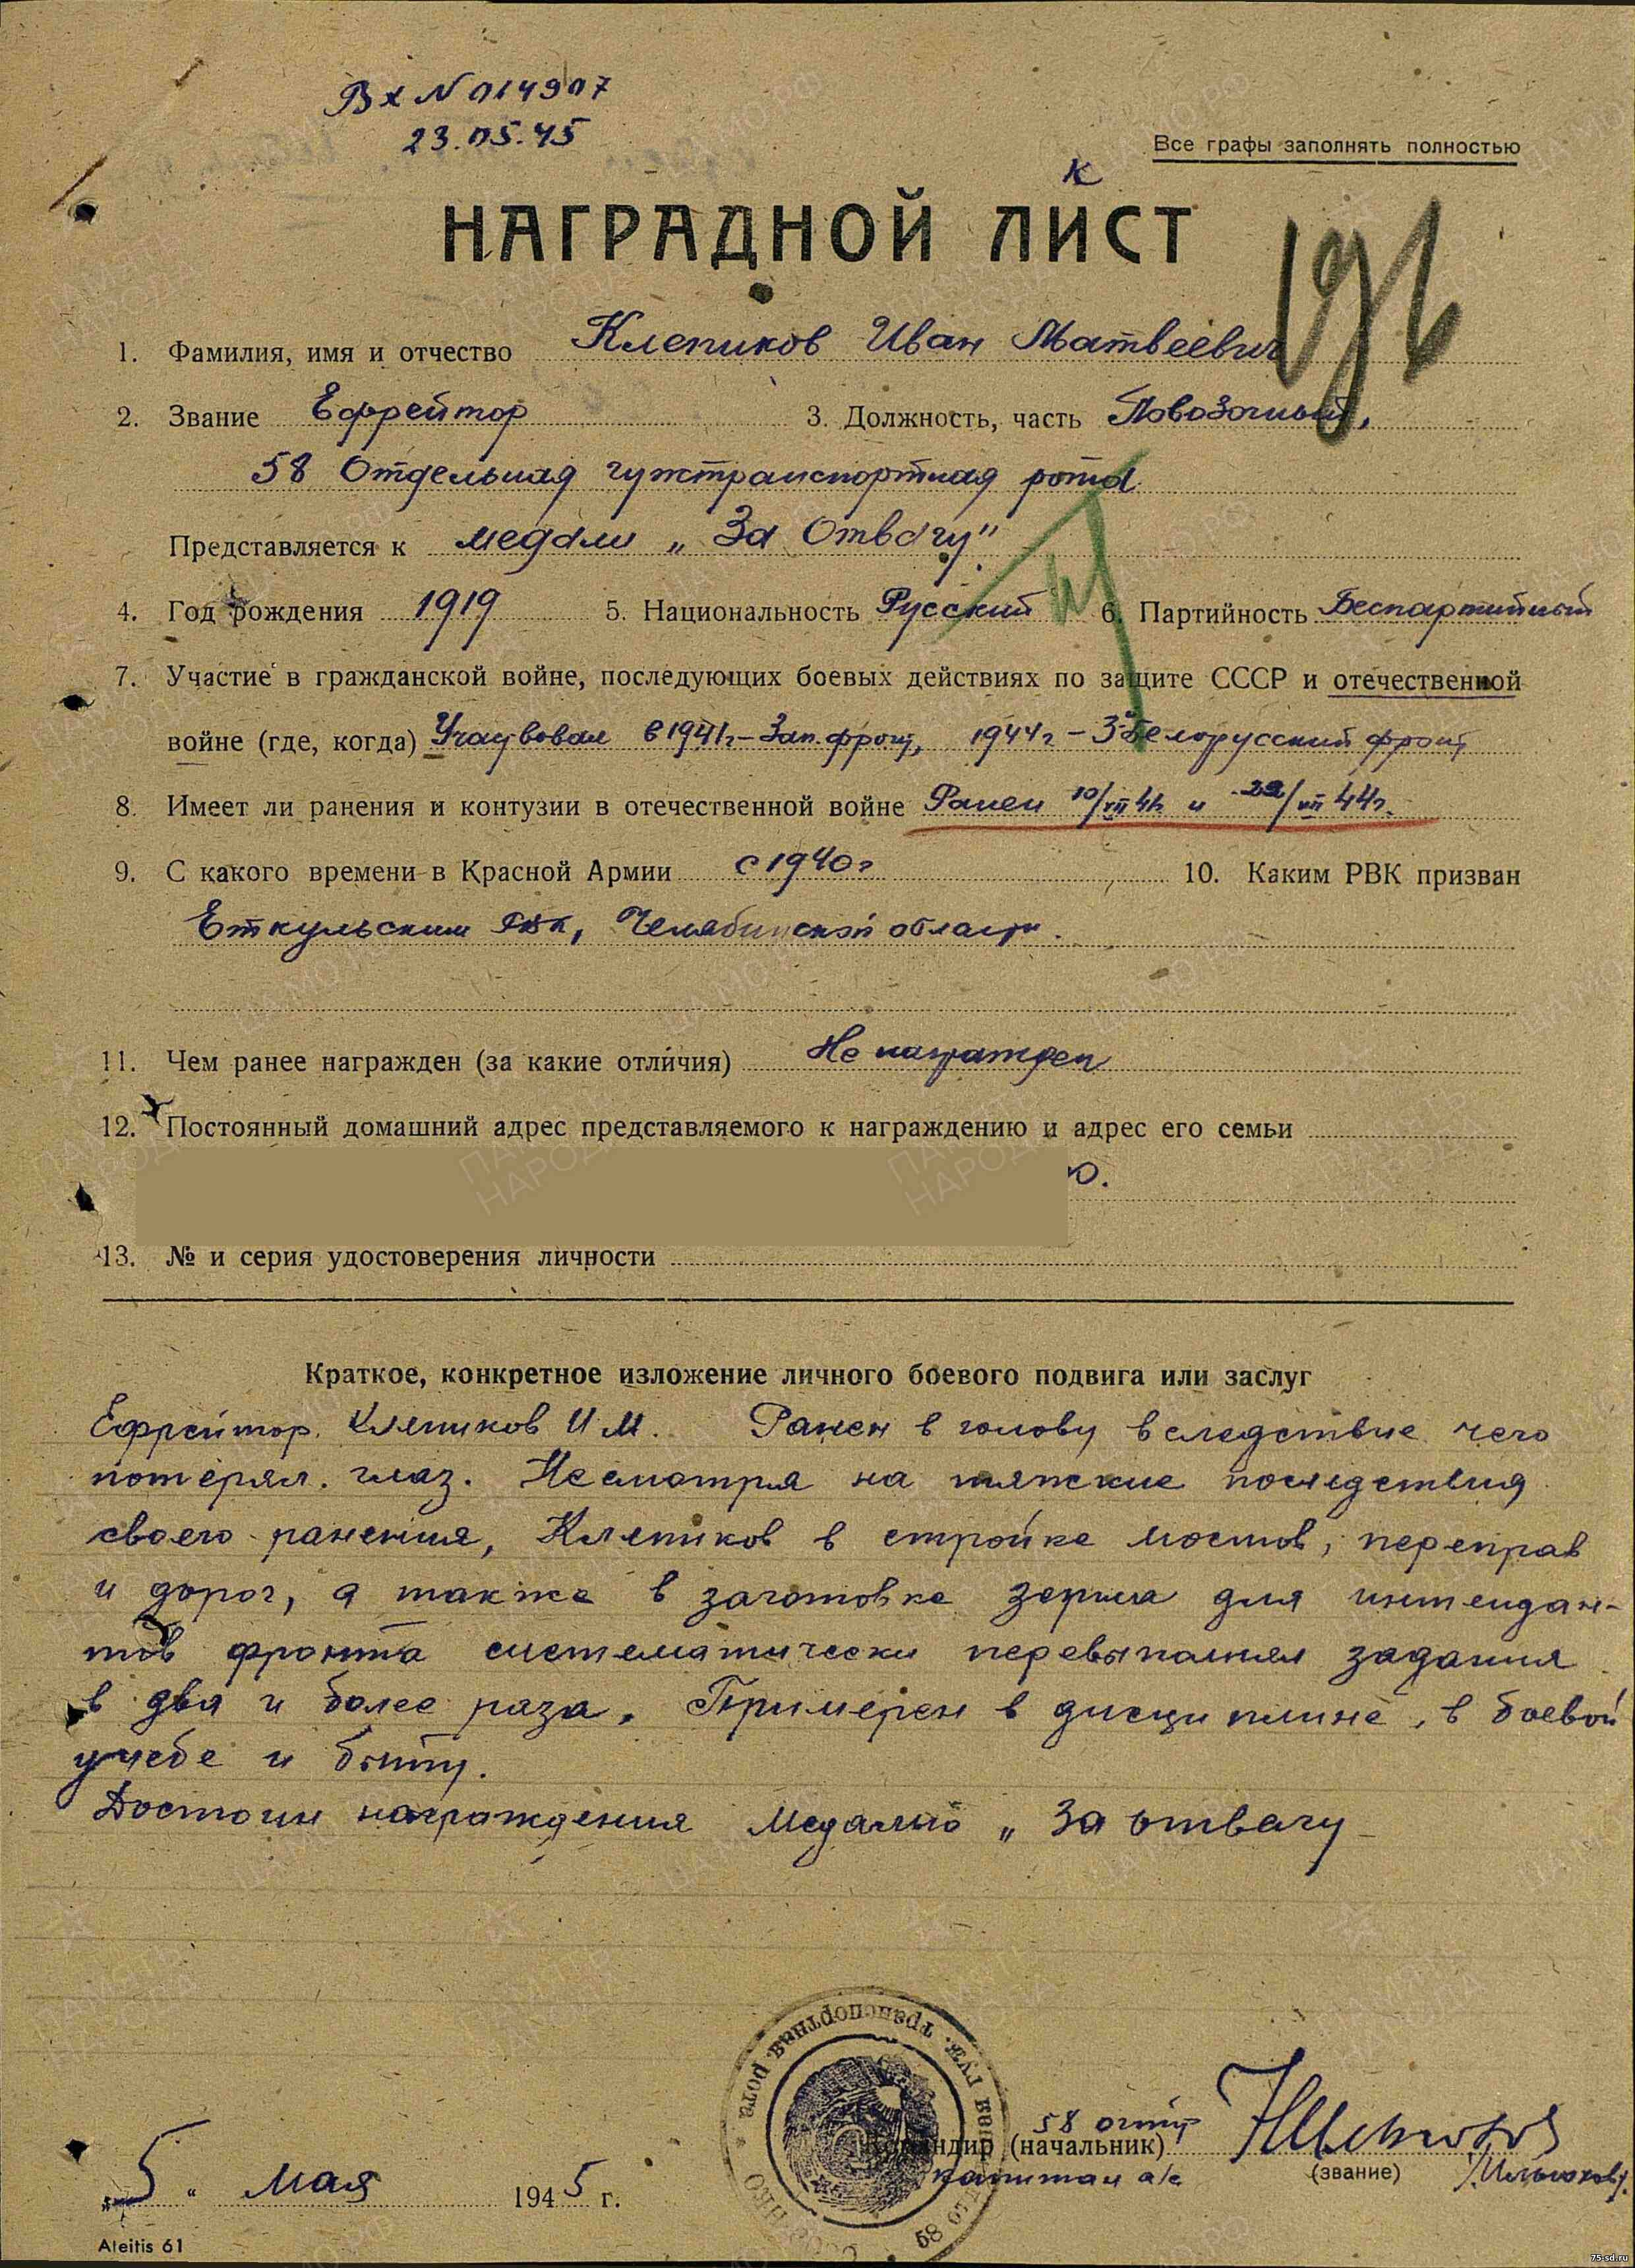 Вх N 014907
23.05.45
Все графы заполнять полностью
к
НАГРАДНОЙ ЛИСТ
1. Фамилия, имя и отчество Клепиков Иван Матвеевич
2. Звание Ефрейтор 3. Должность, часть Повозочный,
58 Отдельная гужтранспортная рота
Представляется к медали „За Отвагу"
4. Год рождения 1919 5. Национальность Русский 6. Партийность Беспартийный
7. Участие в гражданской войне, последующих боевых действиях по защите СССР и отечественной
войне (где, когда) Участвовал в 1941г-Зап. фронт, 1944г - 3й Белорусский фронт
8. Имеет ли ранения и контузии в отечественной войне Ранен и 22/VII 44г.
9. С какого времени в Красной Армии с 1940г 10. Каким РВК призван
Еткульским РВК, Челябинской области.
11. Чем ранее награжден (за какие отличия) Не награжден
12. Постоянный домашний адрес представляемого к награждению и адрес его семьи
13. № и серия удостоверения личности
Краткое, конкретное изложение личного боевого подвига или заслуг
Ефрейтор Кляпиков И М. Ранен в голову вследствие чего
потерял глаз. Несмотря на тяжкие последствия
своего ранения, Кляпиков в стройке мостов, переправ
и дорог, а также в заготовке зерна для интендан-
тов фронта систематически перевыполнял задания
в два и более раза. Примерен в дисциплине, в боевой
учебе и быту.
Достоин награждения медалью „За отвагу
58 огтр
Командир (начальник)
капитан а/с (звание)
„5" мая 1945 г.
Ateitis 61
транспортная рота
58
ПАМЯТЬ НАРОДА
ЦА МО РФ
75-sd.ru